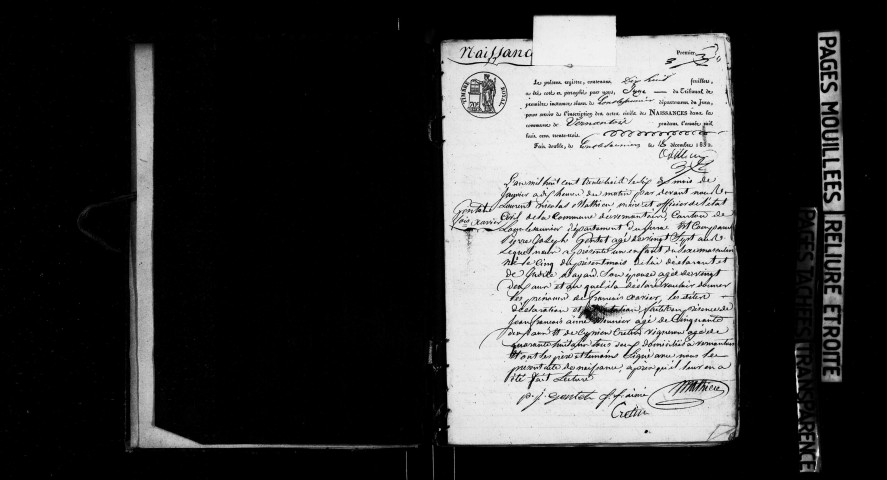 Naissanc
Premier
TIMBRE ROYAL
Le présent registre, contenant Dix huit feuillets,
a été coté et paraphé par nous, Juge du Tribunal de
première instance séant de Lons-le-Saunier département du Jura,
pour servir à l'inscription des actes civils de NAISSANCES dans la
commune de Vernantois pendant l'année mil
huit cent trente-trois.
Fait double, à Lons-le-Saunier le décembre 1832
L'an mil huit cent trente trois le dix du mois de
janvier a dix heures du matin par devant nous
Laurent Nicolas Mathieu maire et officier de l'état
Civil de la Commune de Vernantois, Canton de
Lons-le-Saunier département du Jura Est Comparu
Pierre Joseph agé de vingt Sept ans
Lequel nous a présenté un enfant du Sexe masculin
né le Cinq du présent mois de lui déclarant et
de Son épouse agée de vingt
deux ans et auquel il a déclaré vouloir donner
les prénoms de françois Xavier, les dites
déclaration et présentation faites en présence de
Jean françois aimé Meunier agé de Cinquante
deux ans Et de Cyprien Cretin vigneron agé de
quarante huit ans tous deux domiciliés a Vernantois
Et ont les père et témoins Signé avec nous le
présent acte de naissance, après qu'il leur en a
été fait Lecture
p. j. j. f. aimé Mathieu
Cretin
Xavier
PAGES MOUILLEES RELIURE ETROITE
PAGES TACHEES TRANSPARENCE